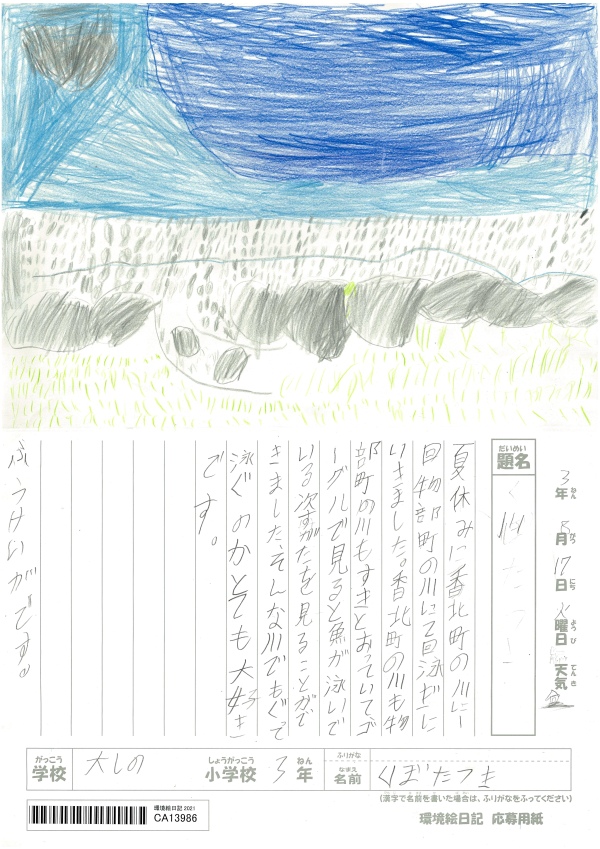 3年ねん 8月がつ 17日にち 火曜日ようび 天気てんき
だいめい
題名
夏休みに香北町の川に一
回物部町の川に2回泳ぎに
いきました。香北町の川も物
部町の川もすきとおっていてゴ
ーグルで見ると魚が泳いで
いる姿がたを見ることがで
きました。そんな川でもぐって
泳ぐのがとても大好き
です。
ふうけいがです。
がっこう 学校 大しの しょうがっこう 小学校 3 ねん 年
ふりがな
なまえ 名前 くぼたつき
(漢字で名前を書いた場合は、ふりがなをふってください)
環境絵日記 2021
CA13986
環境絵日記 応募用紙